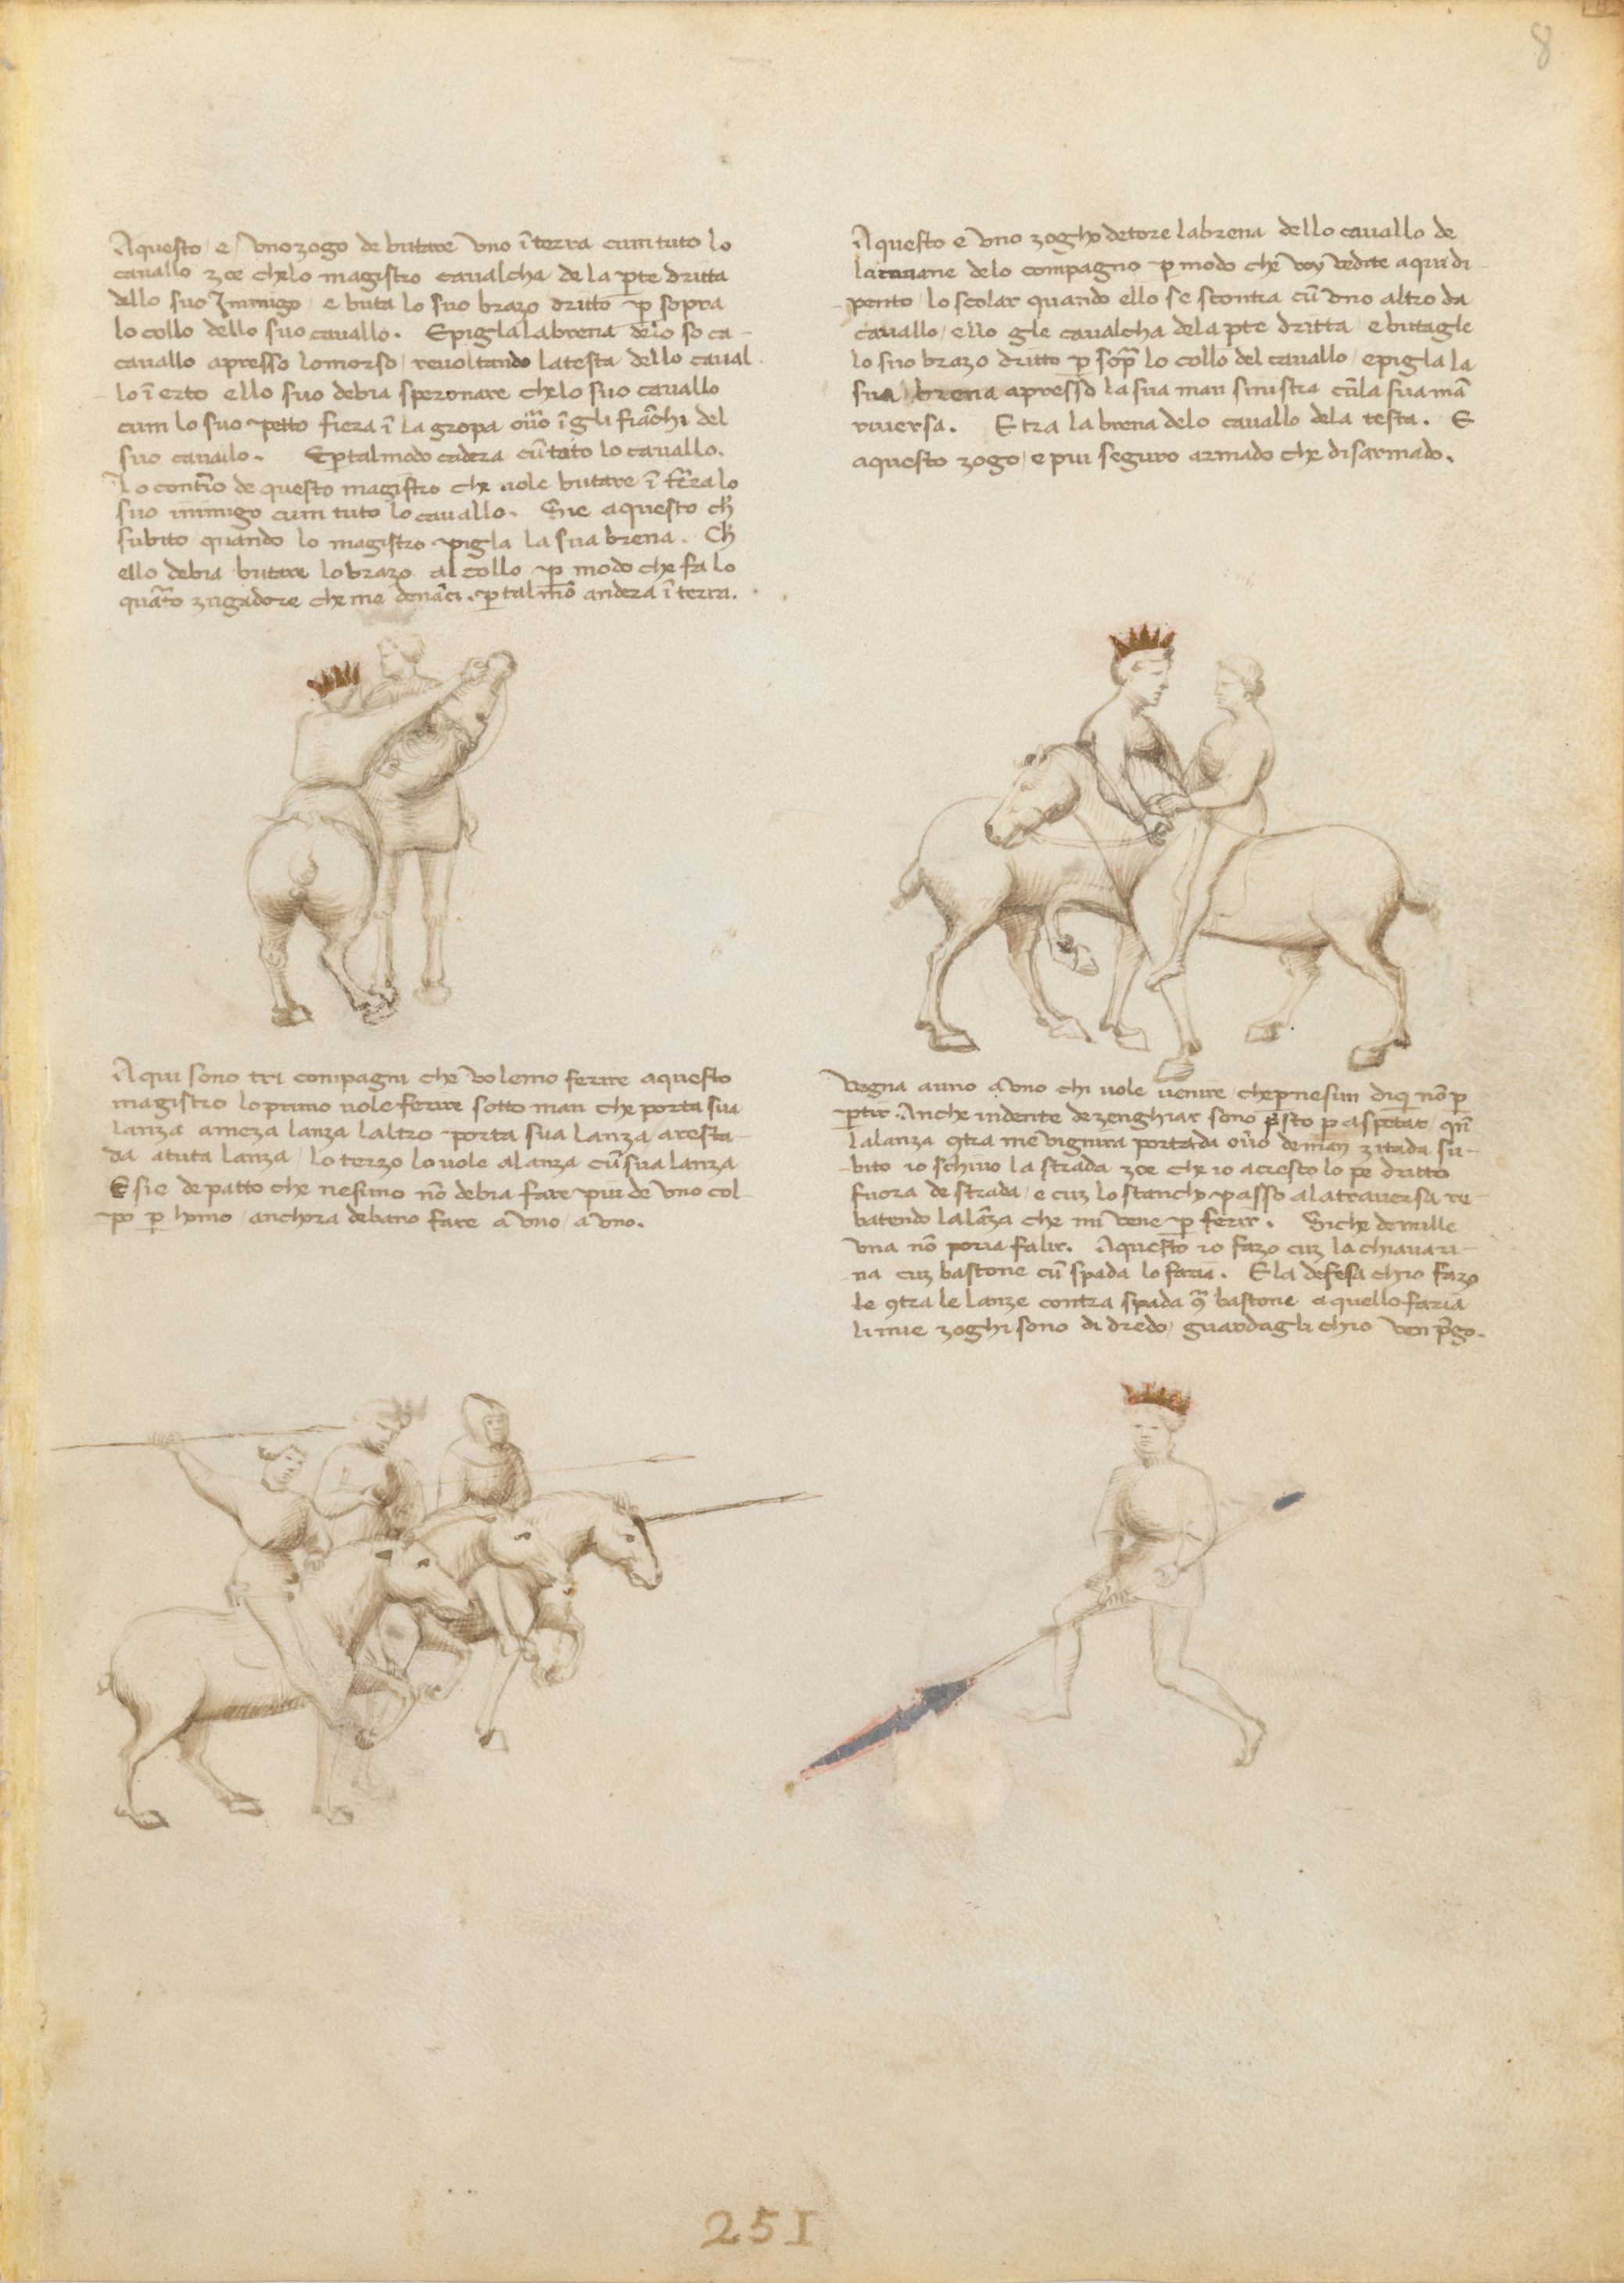 8
Aquesto / e / uno zogo de butare uno ī terra cum tuto lo
cavallo zoe che lo magistro cavalcha de la p̱te dritta
dello suo Inimigo / e buta lo suo brazo dritto p̱ sopra
lo collo dello suo cavallo. E pigla la brena delo so ca-
cavallo apresso lo morso / revoltando la testa dello caval
lo ī erto ello suo debia speronare che lo suo cavallo
cum lo suo petto fiera ī la gropa ov̄o ī gli fiāchi del
suo cavallo. E p̱ tal modo cadera cū tuto lo cavallo.
Lo cont̄rio de questo magistro che vole butare ī t̄ra lo
suo inimigo cum tuto lo cavallo. Sie aquesto ch̄
subito quando lo magistro pigla la sua brena. Ch̄
ello debia butare lo brazo al collo p̱ modo che fa lo
quārto zugadore che me denāci. p̱ tal mō andera ī terra.
Aquesto e uno zogho de tore la brena dello cavallo de
la mane delo compagno p̱ modo che voy vedite aqui di-
pento / lo scolar quando ello se scontra cū uno altro da
cavallo / ello gle cavalcha dela p̱te dritta / e butagle
lo suo brazo dritto p̱ sop̄ lo collo del cavallo / e pigla la
sua brena apresso la sua man sinistra cū la sua mā
riversa. E tra la brena delo cavallo dela testa. E
aquesto zogo / e piu seguro armado che disarmado.
Aqui sono tri compagni che volemo ferire aquesto
magistro lo primo vole ferire sotto man che porta sua
lanza a meza lanza laltro porta sua lanza aresta-
da a tuta lanza / lo terzo lo vole alanzar cū sua lanza
E sie de patto che nesuno nō debia fare piu de uno col-
po p̱ homo / anchora debano fare a uno / a uno.
Vegna a uno a uno chi vole venire / che p̱ nesun di qī nō p̱
p̱tir. Anche in dente de zenghiar sono p̄sto p̱ aspetar / qn̄
la lanza 9tra mē vignira portada ov̄o de man zitada su-
bito io schivo la strada zoe che io acresco lo pe dritto
fuora de strada / e cuz lo stancho passo ala traversa re-
batendo la lāza che mi vene p̱ ferir. Siche de mille
una nō poria falir. Aquesto io fazo cuz la chiavari-
na cuz bastone cū spada lo faria. E la defesa chio fazo
le 9tra le lanze contra spada 9̄ bastone aquello faria
li mie zoghi sono di dredo / guardagli chio ven p̄go.
251